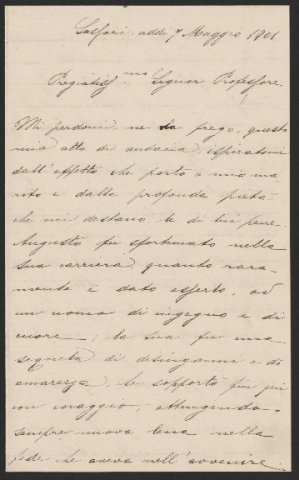 Sassari, addì 7 Maggio 1901
Pregiatiss.mo Signor Professore,
Mi perdoni, ne la prego, questo
mio atto di audacia, ispiratomi
dall'affetto che porto a mio ma
rito e dalla profonda pietà
che mi destano le di lui pene.
Augusto fu sfortunato nella
sua carriera, quanto rara-
mente è dato esserlo, ad
un uomo di ingegno e di
cuore; la sua fu una
sequela di disinganni e di
amarezze, che sopportò fin qui
con coraggio, attingendo
sempre nuova lena nella
fede che aveva nell'avvenire.